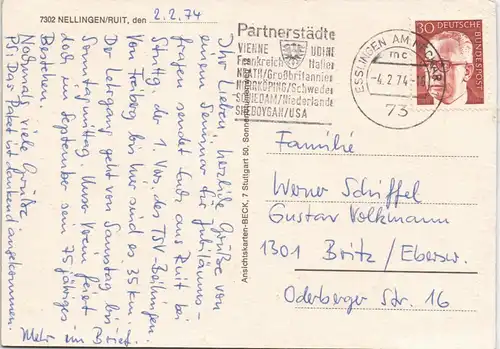 7302 NELLINGEN/RUIT, den 2.2.74
Ihr Lieben, herzliche Grüße von
einem Seminar für Jubiläums-
fragen sendet Euch aus Ruit bei
Stuttg. der 1. Vors. des TSV-
Von Freiberg bis hier sind es 35 km.
Der Lehrgang geht von Samstag bis
Sonntagmittag. Unser Verein feiert
doch im September sein 75 jähriges
Bestehen.
Nochmals viele Grüße
PS. Das Paket ist dankend angekommen.
Mehr im Brief.
Ansichtskarten-BECK, 7 Stuttgart 50, Sonnen
Partnerstädte
VIENNE UDINE
Frankreich Italien
NEATH/Großbritannien
NORRKÖPING/Schweden
SCHIEDAM/Niederlande
SHEBOYGAN/USA
ESSLINGEN AM NECKAR
mc
-4.2.74-18
73
30 DEUTSCHE BUNDESPOST
Familie
Werner Schiffel
Gustav Volkmann
1301 Britz / Ebersw.
Oderberger Str. 16